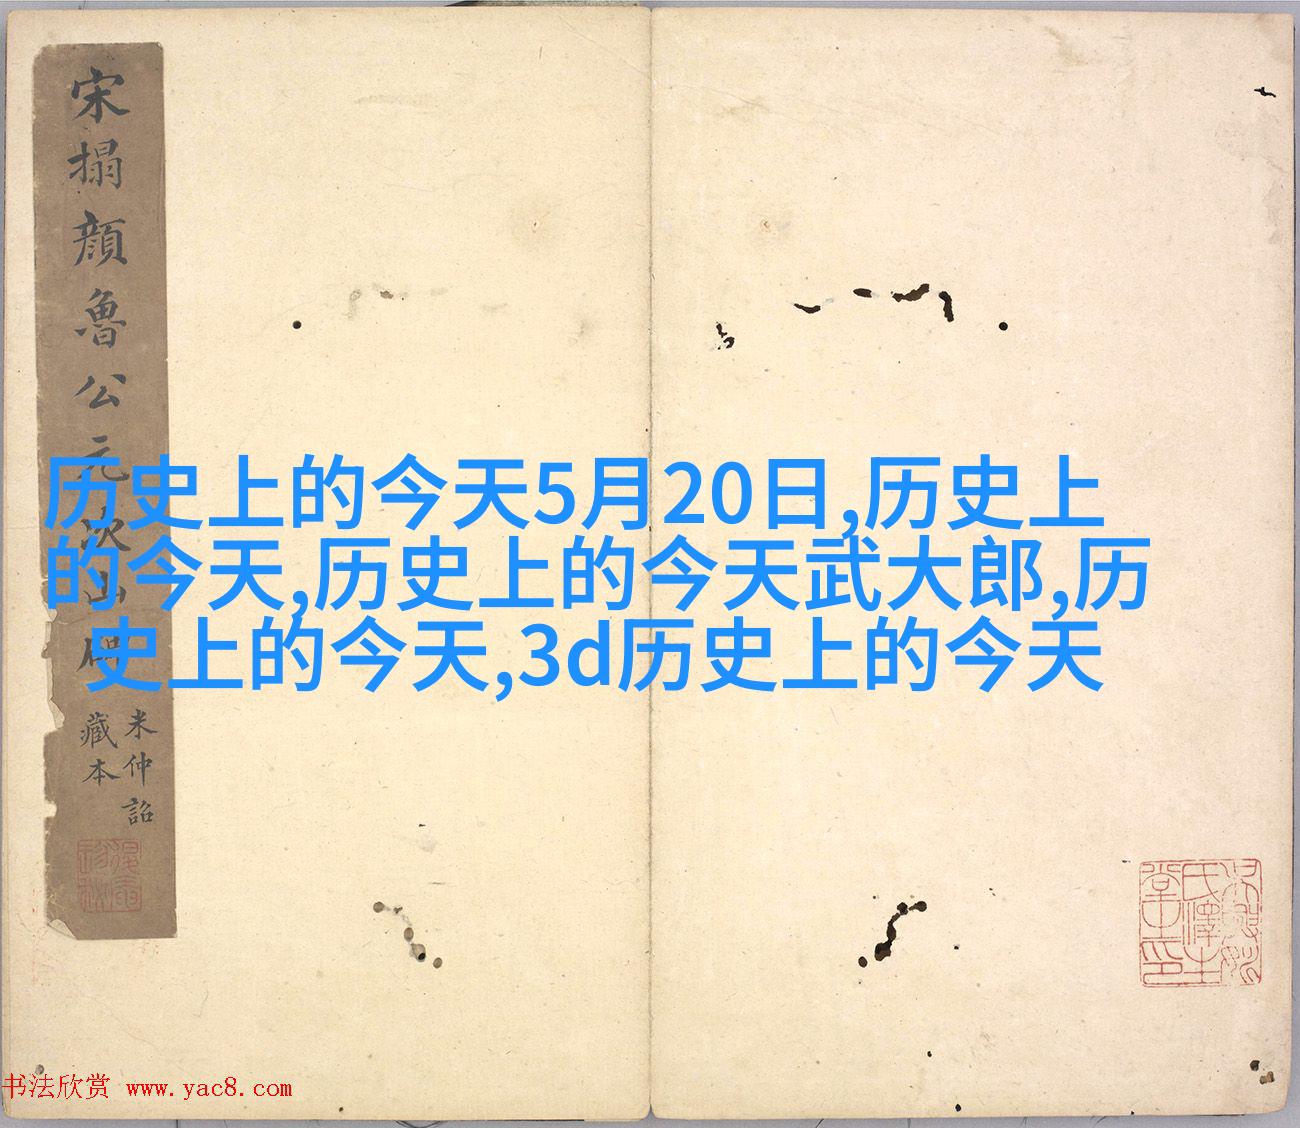 宋搨顔魯公元次山碑
米仲詔
藏本
历史上的今天5月20日,历史上
的今天,历史上的今天武大郎,历
史上的今天,3d历史上的今天
书法欣赏 www.yac8.com